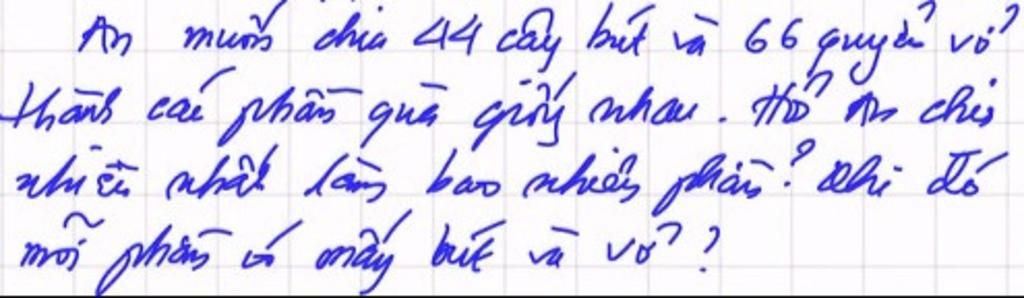 An muốn chia 44 cây bút và 66 quyển vở
thành các phần quà giống nhau. Hỏi An chia
nhiều nhất làm bao nhiêu phần? Khi đó
mỗi phần có mấy bút và vở?